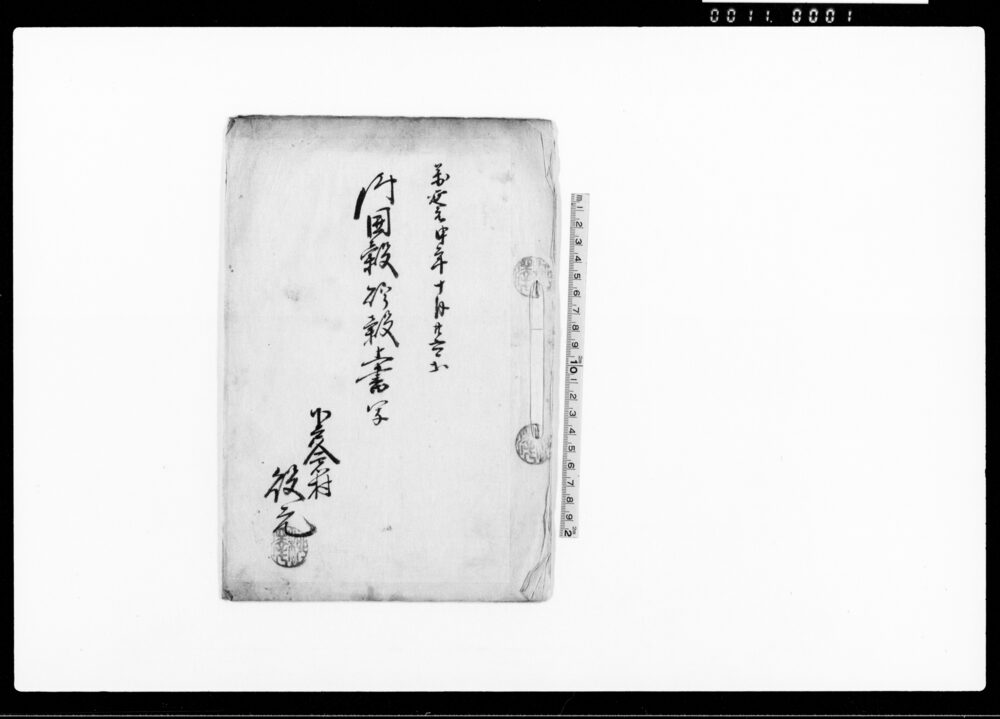 0011. 0001
萬延元申年十月廿六日
御囲穀貯穀上書写
村
役元
1 2 3 4 5 6 7 8 9 10 1 2 3 4 5 6 7 8 9 2